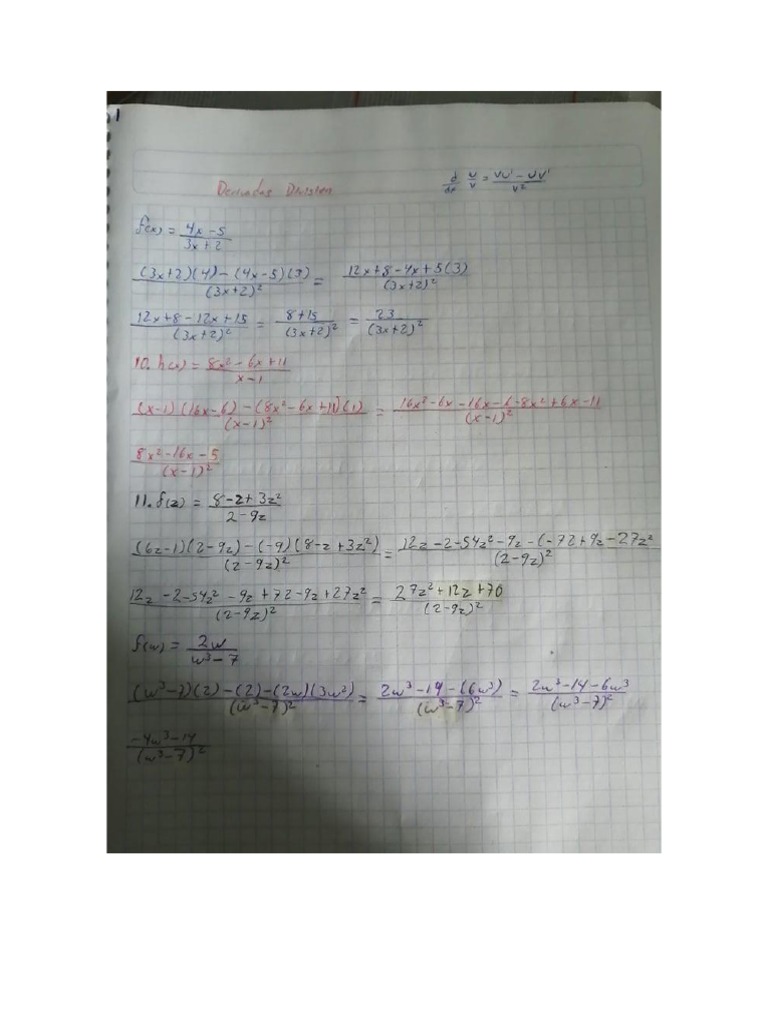 1
Derivadas Division
d/dx u/v = (vu' - uv')/v²
f(x) = (4x-5)/(3x+2)
((3x+2)(4) - (4x-5)(3))/(3x+2)² = (12x+8-4x+5(3))/(3x+2)²
(12x+8-12x+15)/(3x+2)² = (8+15)/(3x+2)² = 23/(3x+2)²
10. h(x) = (8x²-6x+11)/(x-1)
((x-1)(16x-6) - (8x²-6x+11)(1))/(x-1)² = (16x²-6x-16x-6-8x²+6x-11)/(x-1)²
(8x²-16x-5)/(x-1)²
11. f(z) = (8-z+3z²)/(2-9z)
((6z-1)(2-9z) - (-9)(8-z+3z²))/(2-9z)² = (12z-2-54z²-9z-(-72+9z-27z²)/(2-9z)²
(12z-2-54z²-9z+72-9z+27z²)/(2-9z)² = (27z²+12z+70)/(2-9z)²
f(w) = 2w/(w³-7)
((w³-7)(2)-(2)-(2w)(3w²))/(w³-7)² = (2w³-14-(6w³))/(w³-7)² = (2w³-14-6w³)/(w³-7)²
(-4w³-14)/(w³-7)²